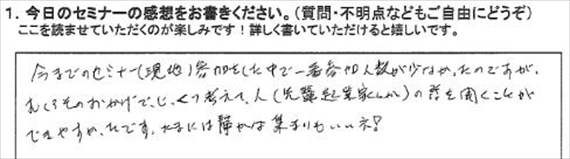 1. 今日のセミナーの感想をお書きください。(質問・不明点などもご自由にどうぞ)
ここを読ませていただくのが楽しみです！詳しく書いていただけると嬉しいです。
今までのセミナー(現地)参加をした中で一番参加人数が少なかったのですが、
むしろそのおかげで、じっくり考えて、人(先輩起業家さん)の話を聞くことが
できやすかったです。たまには静かな集まりもいいネ！